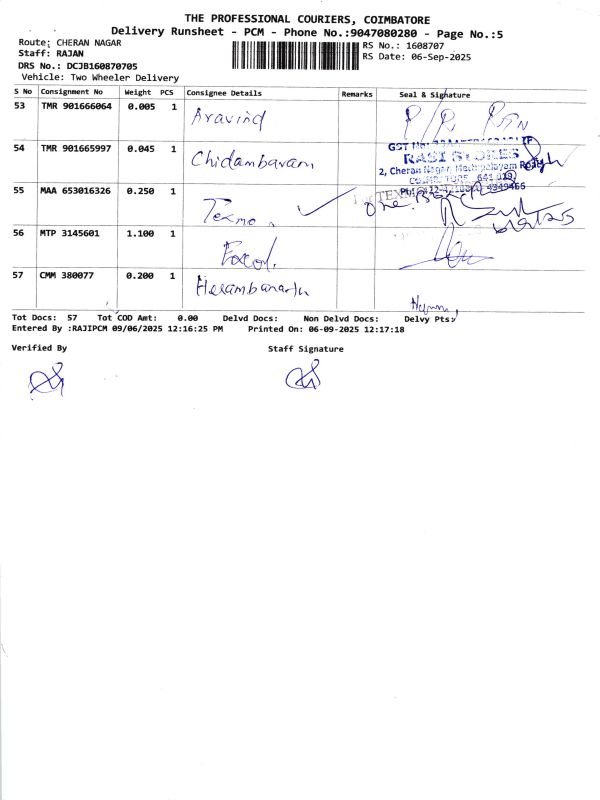 THE PROFESSIONAL COURIERS, COIMBATORE
Delivery Runsheet - PCM - Phone No.:9047080280 - Page No.:5
Route: CHERAN NAGAR
RS No.: 1608707
Staff: RAJAN
RS Date: 06-Sep-2025
DRS No.: DCJB160870705
Vehicle: Two Wheeler Delivery
S No Consignment No Weight PCS Consignee Details Remarks Seal & Signature
53 TMR 901666064 0.005 1 Aravind
54 TMR 901665997 0.045 1 Chidambaram
RASI STORES
2, Cheran Nagar,
55 MAA 653016326 0.250 1 Texmo
56 MTP 3145601 1.100 1
57 CMM 380077 0.200 1
Tot Docs: 57 Tot COD Amt: 0.00 Delvd Docs: Non Delvd Docs: Delvy Pts:
Entered By :RAJIPCM 09/06/2025 12:16:25 PM Printed On: 06-09-2025 12:17:18
Verified By Staff Signature